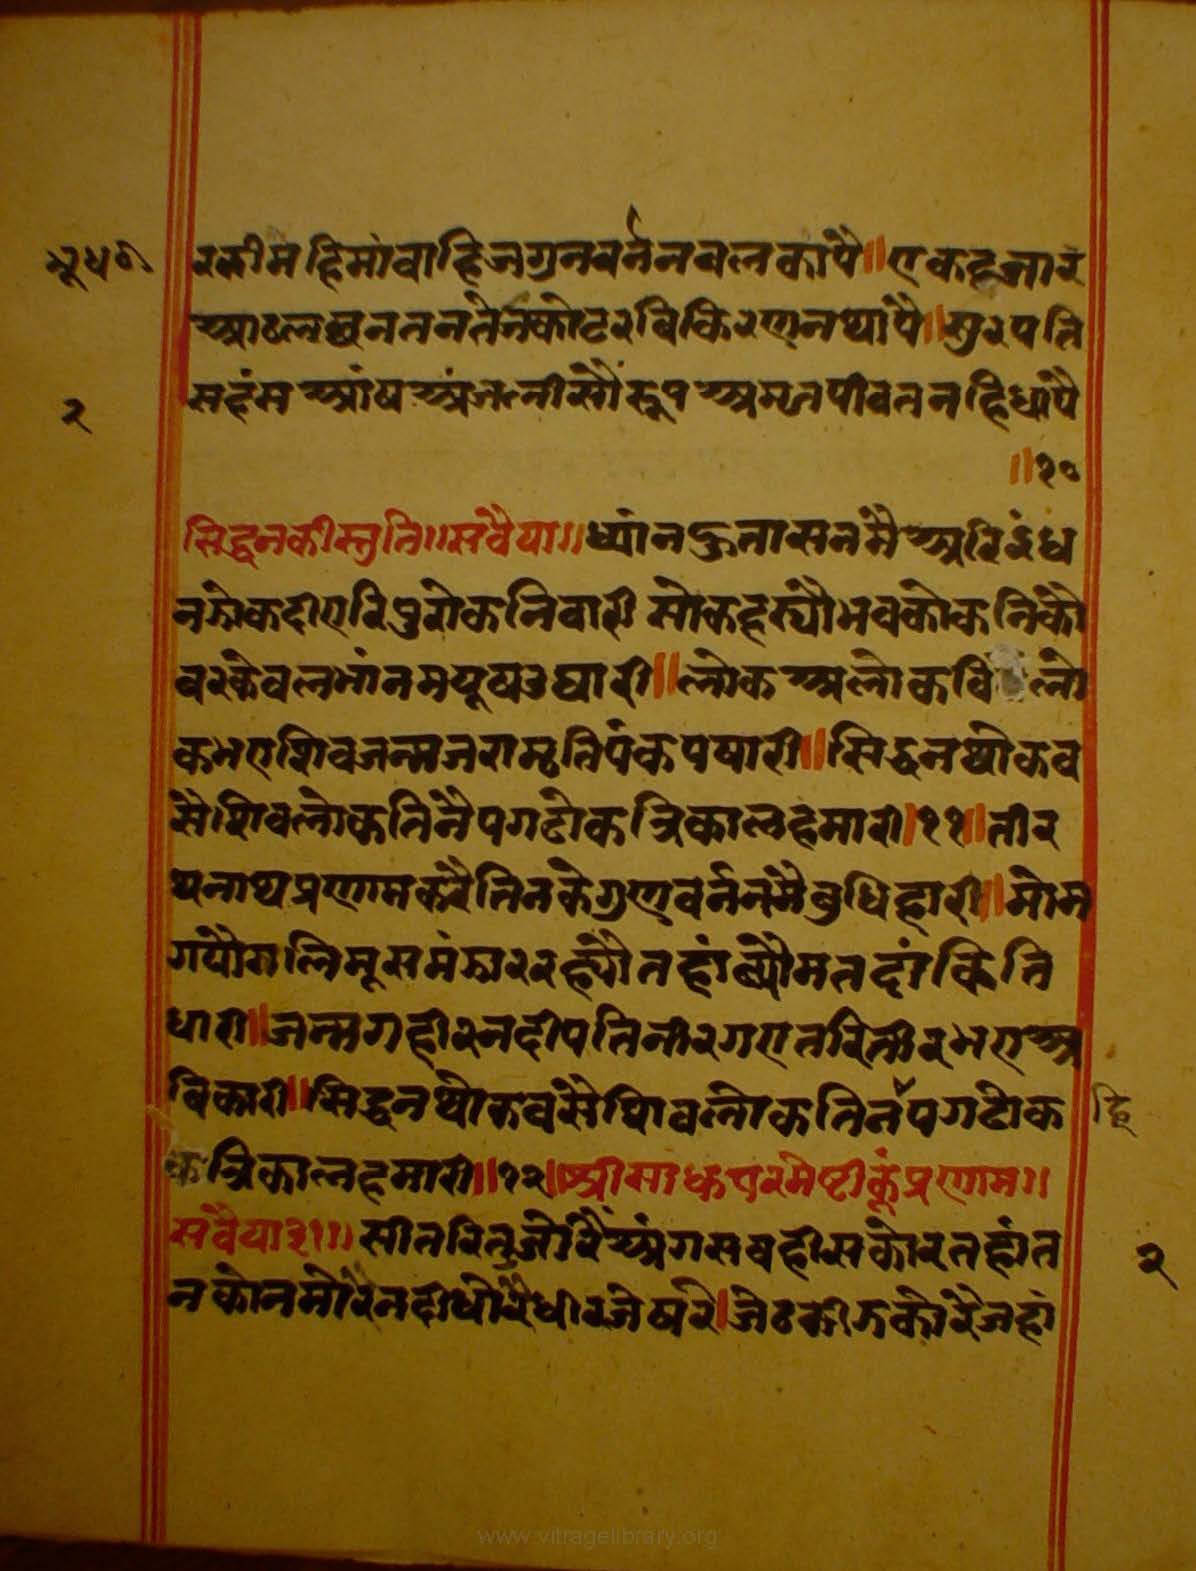 भूधरी
रकी महिमां वाहिज गुन बर्नन बल कांपै॥ एक हजार
आठ लछन तन तेज कोट रवि किरणन थांपै॥ सुरपति
सहंस आंष अंजली सौं रूप अमृत पीवत नहि धांपै
२
॥१०
सिद्धनकी स्तुति॥ सवैया॥ ध्यांन हुतासन मैं अरि इंध
न झोक दीए रिपु रोक निवारी सोक हस्यौ भवकोकनिकौ
वर केवल भांन मयूष उघारी॥ लोक अलोक वि लो
क भए शिव जन्म जरा मृति पंक पषारी॥ सिद्धन थोक व
सै शिवलोक तिनै पगढोक त्रिकाल हमारी॥११॥ तीर
थनाथ प्रणाम करै तिनके गुण वर्नन मै बुधि हारी॥ मोम
गयौ गलि मूस मंझार रह्यौ तहां व्यौम तदांक्रिति
धारी॥ जन्म गहीर नदीपति नीर गए तरि तीर भए अ
विकारी॥ सिद्धन थोक वसै शिवलोक तिन पगढोक
हि
क त्रिकाल हमारी॥१२॥ श्री साध परमेष्टी कूं प्रणाम॥
सवैया ३१॥ सीतरितु जोरैं अंग सबही सकोरै तहां त
२
न को न मोरै नदी धोरै धीर जे षरे॥ जेठकी झकोरै जहां
www.vitragelibrary.org